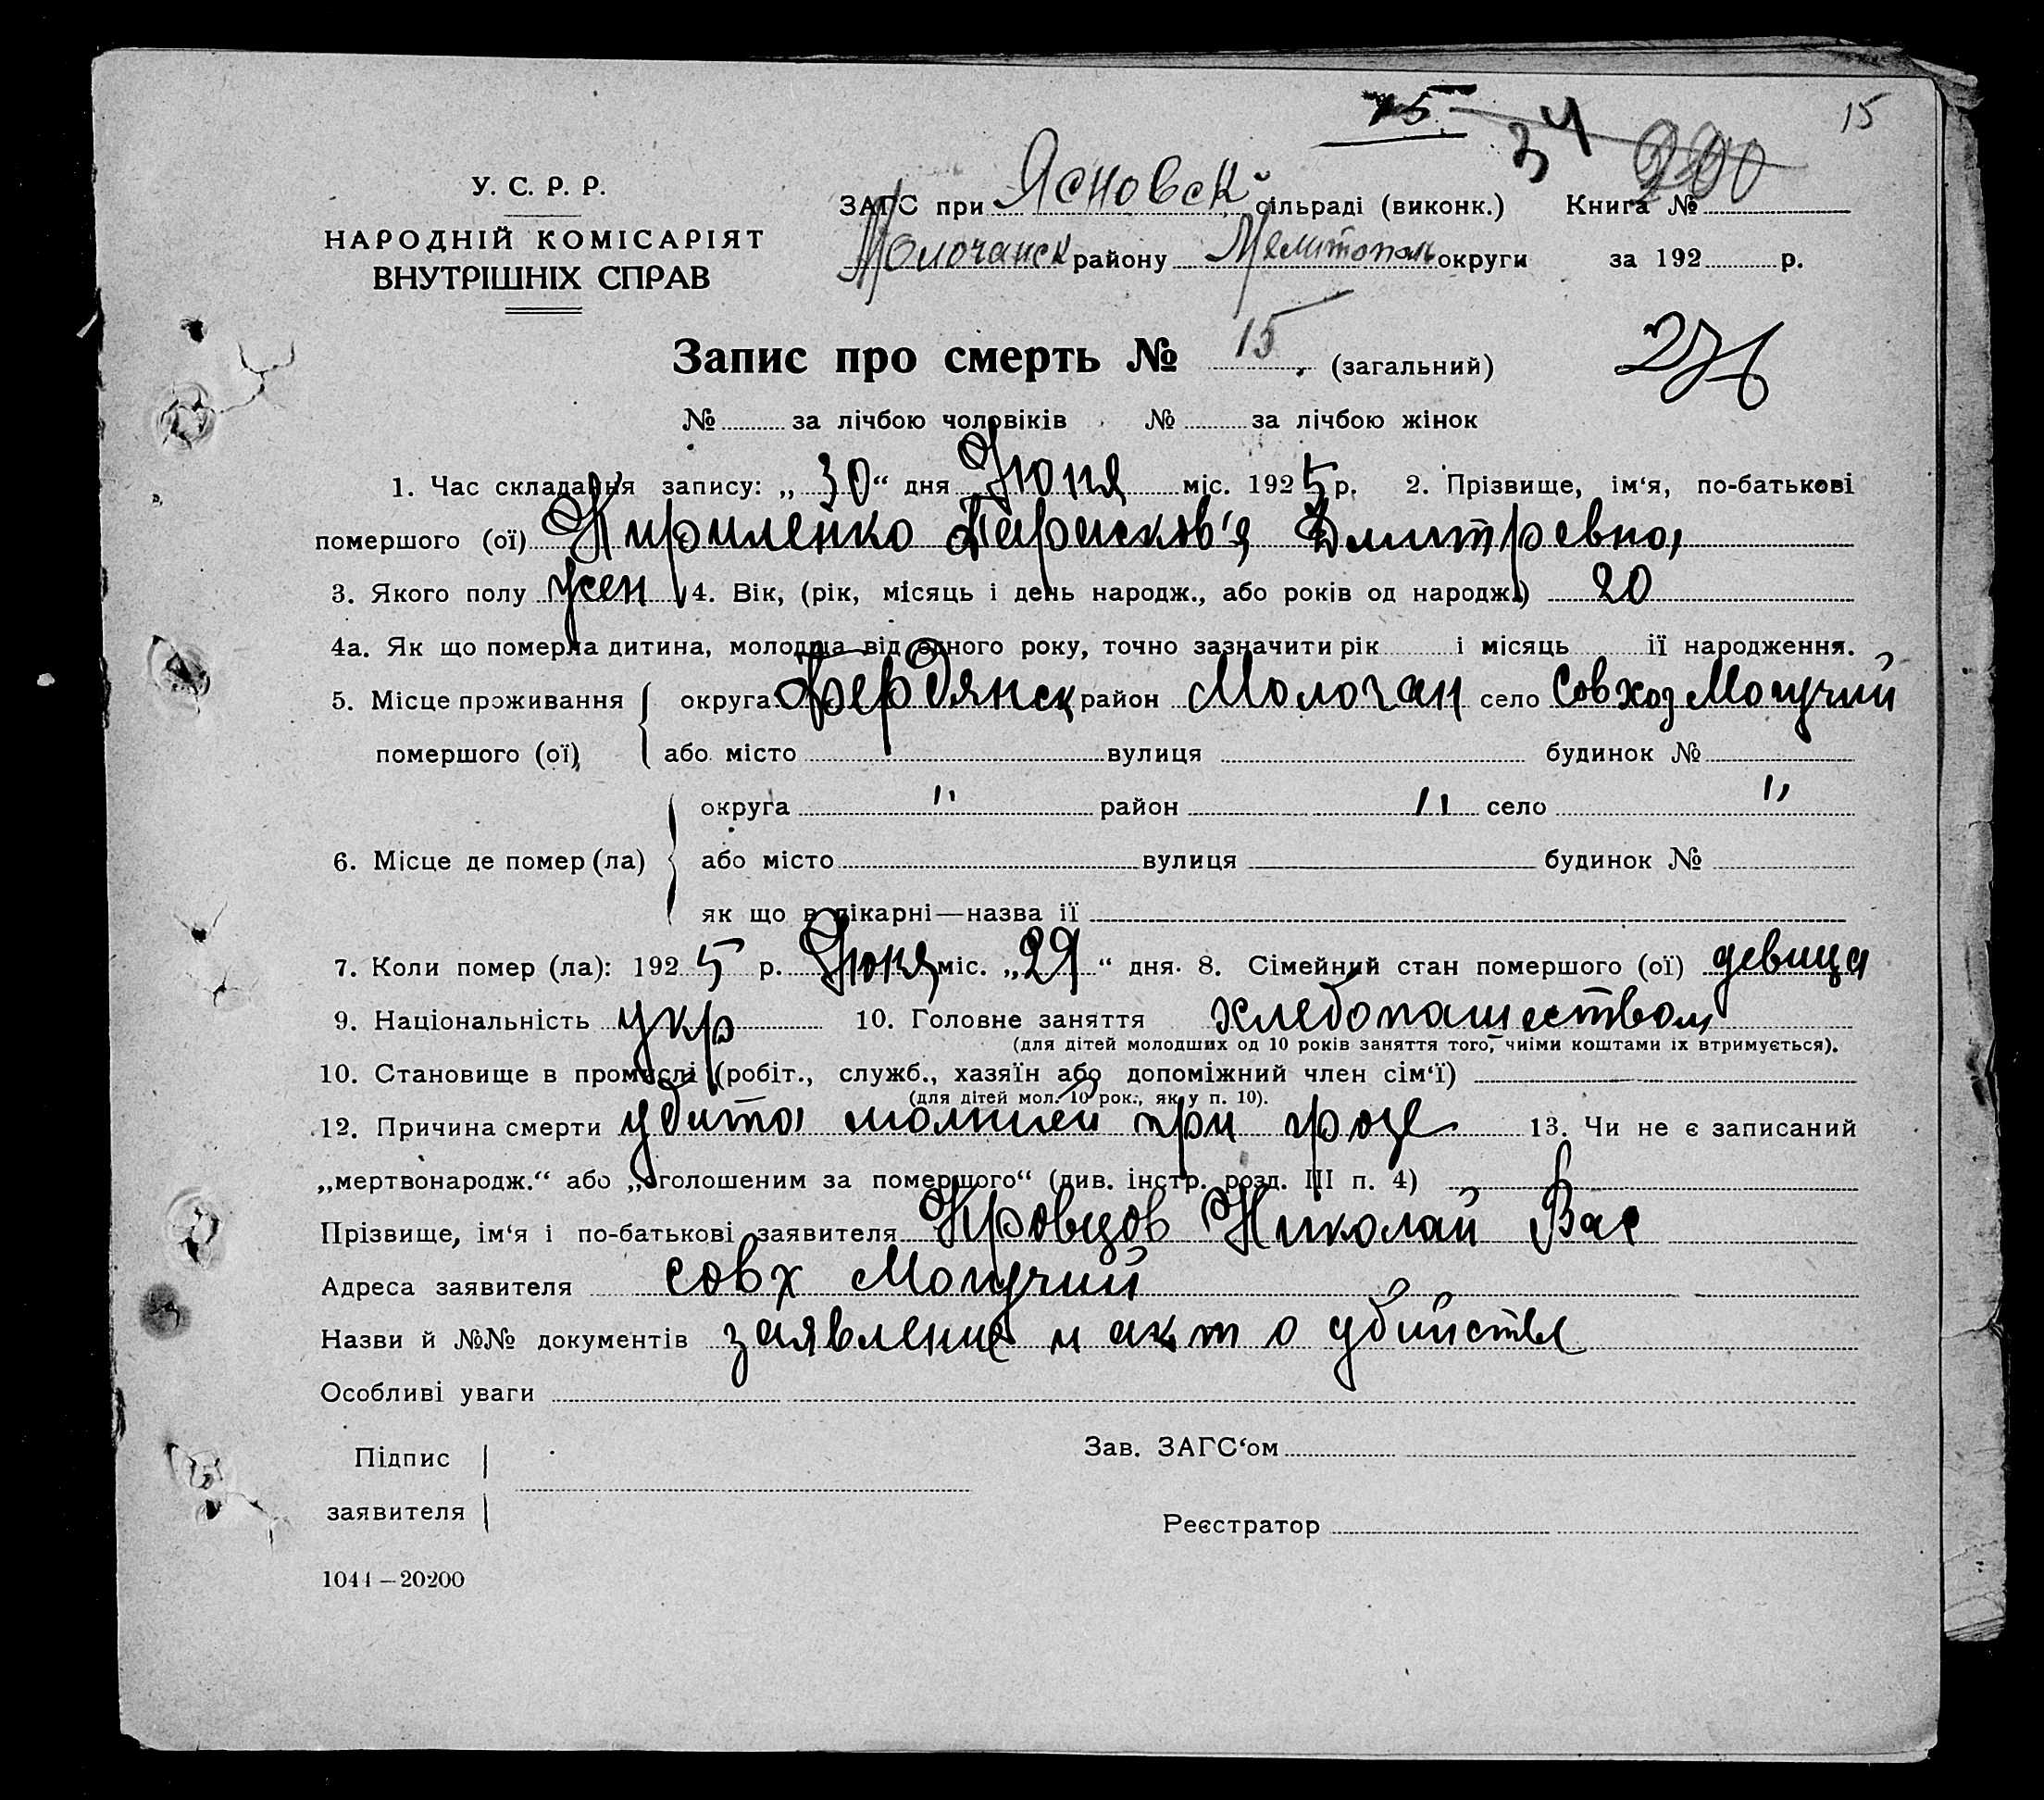 15
34
200
15
У. С. Р. Р.
НАРОДНІЙ КОМІСАРІЯТ
ВНУТРІШНІХ СПРАВ
ЗАГС при Ясновск сільраді (виконк.) Книга №
Молочанск району Мелитополь округи за 192 р.
Запис про смерть № 15 (загальний)
№ за лічбою чоловіків № за лічбою жінок
1. Час складання запису: „30“ дня Июня міс. 1925 р. 2. Прізвище, ім‘я, по-батькові
помершого (ої) Кириленко Парасков'я Дмитревна
3. Якого полу жен 4. Вік, (рік, місяць і день народж., або років од народж.) 20
4а. Як що померла дитина, молодша від одного року, точно зазначити рік і місяць її народження.
5. Місце проживання округа Бердянск район Молочан село Совхоз Могучий
помершого (ої) або місто вулиця будинок №
округа " район " село "
6. Місце де помер (ла) або місто вулиця будинок №
як що в лікарні—назва її
7. Коли помер (ла): 1925 р. Июня міс. „29“ дня. 8. Сімейний стан помершого (ої) девица
9. Національність укр 10. Головне заняття хлебопашеством
(для дітей молодших од 10 років заняття того, чиїми коштами їх втримується).
10. Становище в промислі (робіт., служб., хазяїн або допоміжний член сім‘ї)
(для дітей мол. 10 рок., як у п. 10).
12. Причина смерти убита молнией при грозе 13. Чи не є записаний
„мертвонародж.“ або „оголошеним за помершого“ (див. інстр. розд. III п. 4)
Прізвище, ім‘я і по-батькові заявителя Кровцов Николай Вас
Адреса заявителя совх Могучий
Назви й №№ документів заявление и акт о убийстве
Особливі уваги
Підпис Зав. ЗАГС‘ом
заявителя Реєстратор
1044—20200